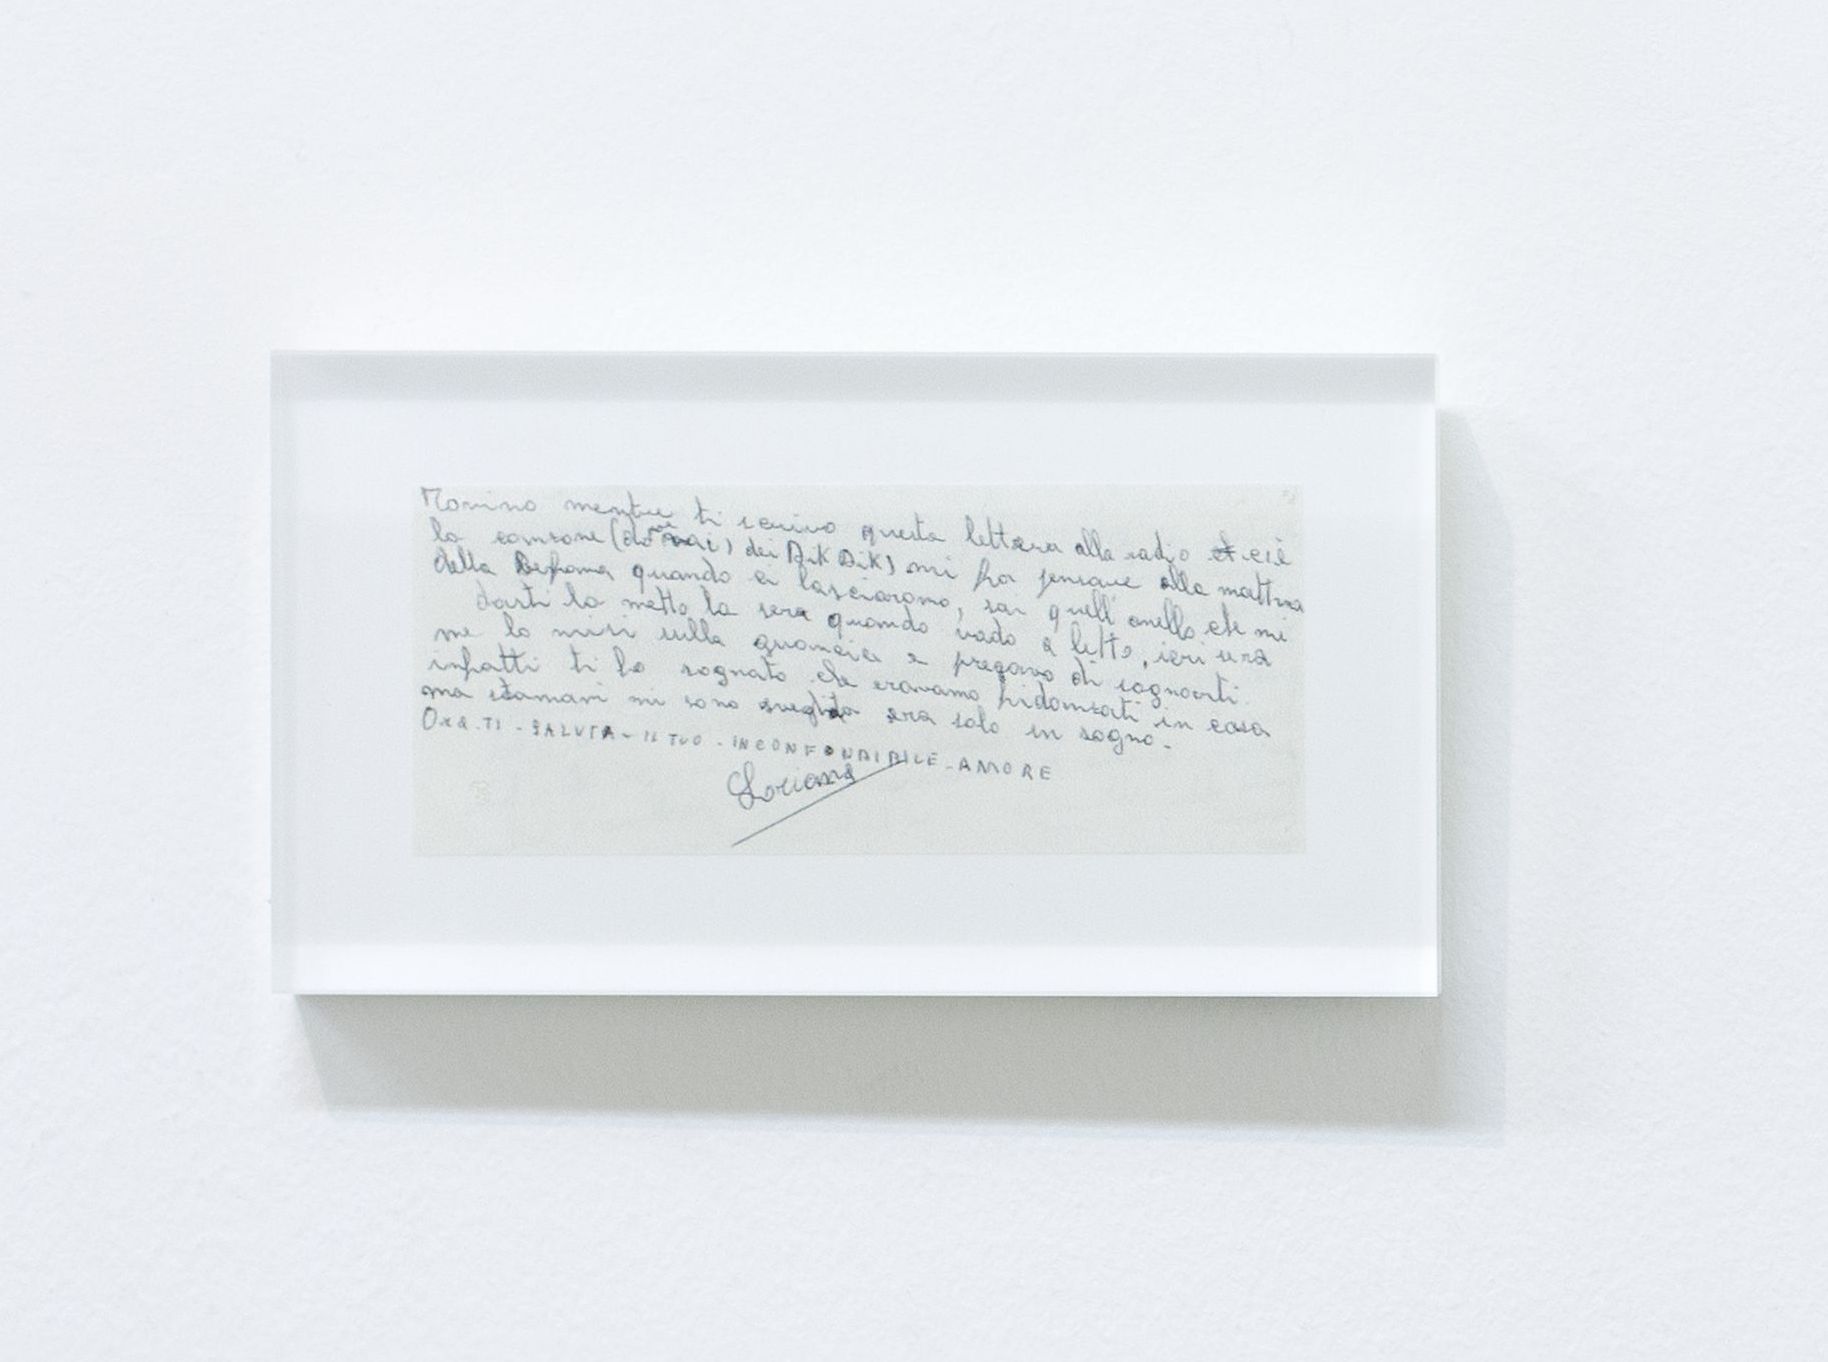 Monino mentre ti scrivo questa lettera alla radio c'è
la canzone (dove vai) dei Dik Dik) mi fa pensare alla mattina
della Befana quando ci lasciaromo, sai quell'anello che mi
dasti lo metto la sera quando vado a letto, ieri sera
me lo misi sulla guancia e pregavo di sognarti.
infatti ti ho sognato che eravamo fidanzati in casa
ma stamani mi sono svegliata era solo in sogno.
ORA - TI - SALUTA - IL TUO - INCONFONDIBILE - AMORE
Loriana